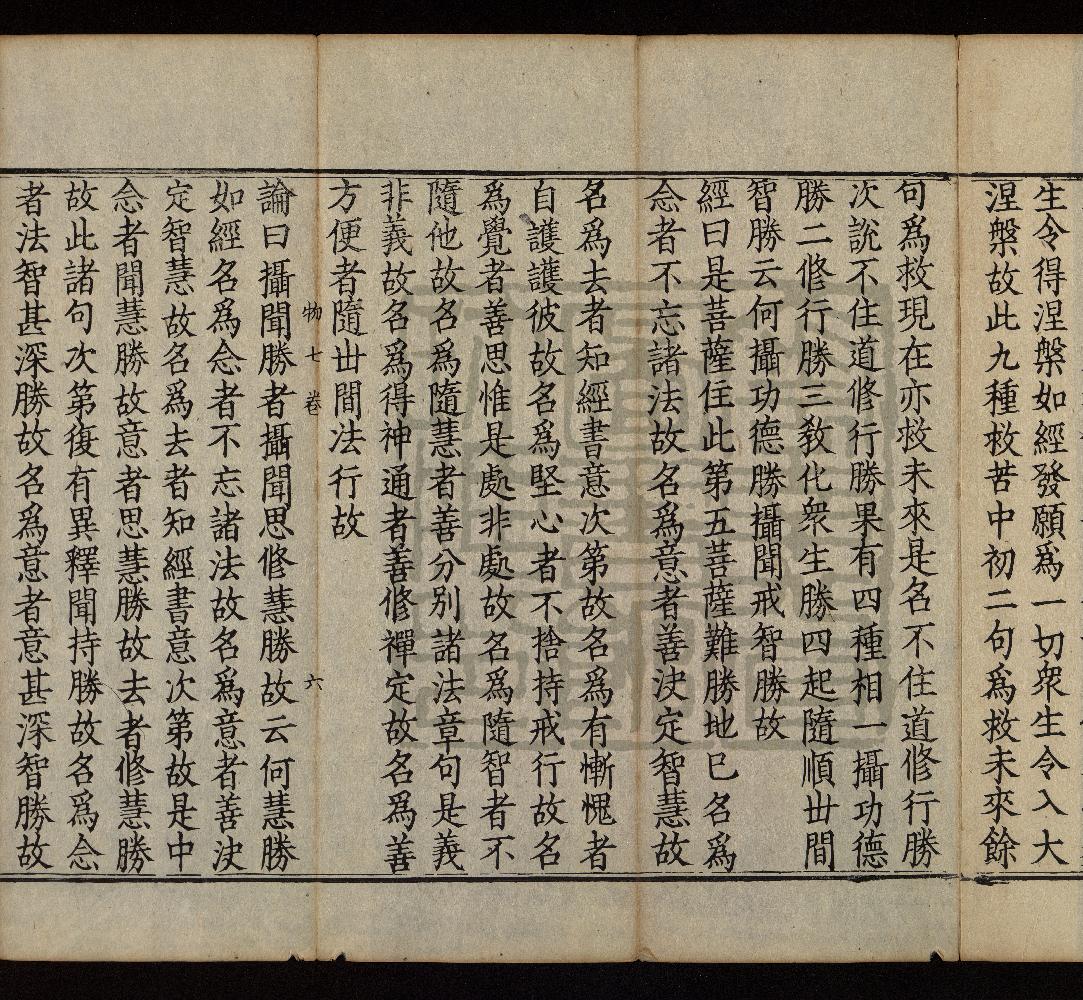 生令得涅槃如經發願爲一切衆生令入大
涅槃故此九種救苦中初二句爲救未來餘
句爲救現在亦救未來是名不住道修行勝
次說不住道修行勝果有四種相一攝功德
勝二修行勝三教化衆生勝四起隨順世間
智勝云何攝功德勝攝聞戒智勝故
經曰是菩薩住此第五菩薩難勝地已名爲
念者不忘諸法故名爲意者善決定智慧故
名爲去者知經書意次第故名爲有慚愧者
自護護彼故名爲堅心者不捨持戒行故名
爲覺者善思惟是處非處故名爲隨智者不
隨他故名爲隨慧者善分別諸法章句是義
非義故名爲得神通者善修禪定故名爲善
方便者隨世間法行故
物七卷 六
論曰攝聞勝者攝聞思修慧勝故云何慧勝
如經名爲念者不忘諸法故名爲意者善決
定智慧故名爲去者知經書意次第故是中
念者聞慧勝故意者思慧勝故去者修慧勝
故此諸句次第復有異釋聞持勝故名爲念
者法智甚深勝故名爲意者意甚深智勝故